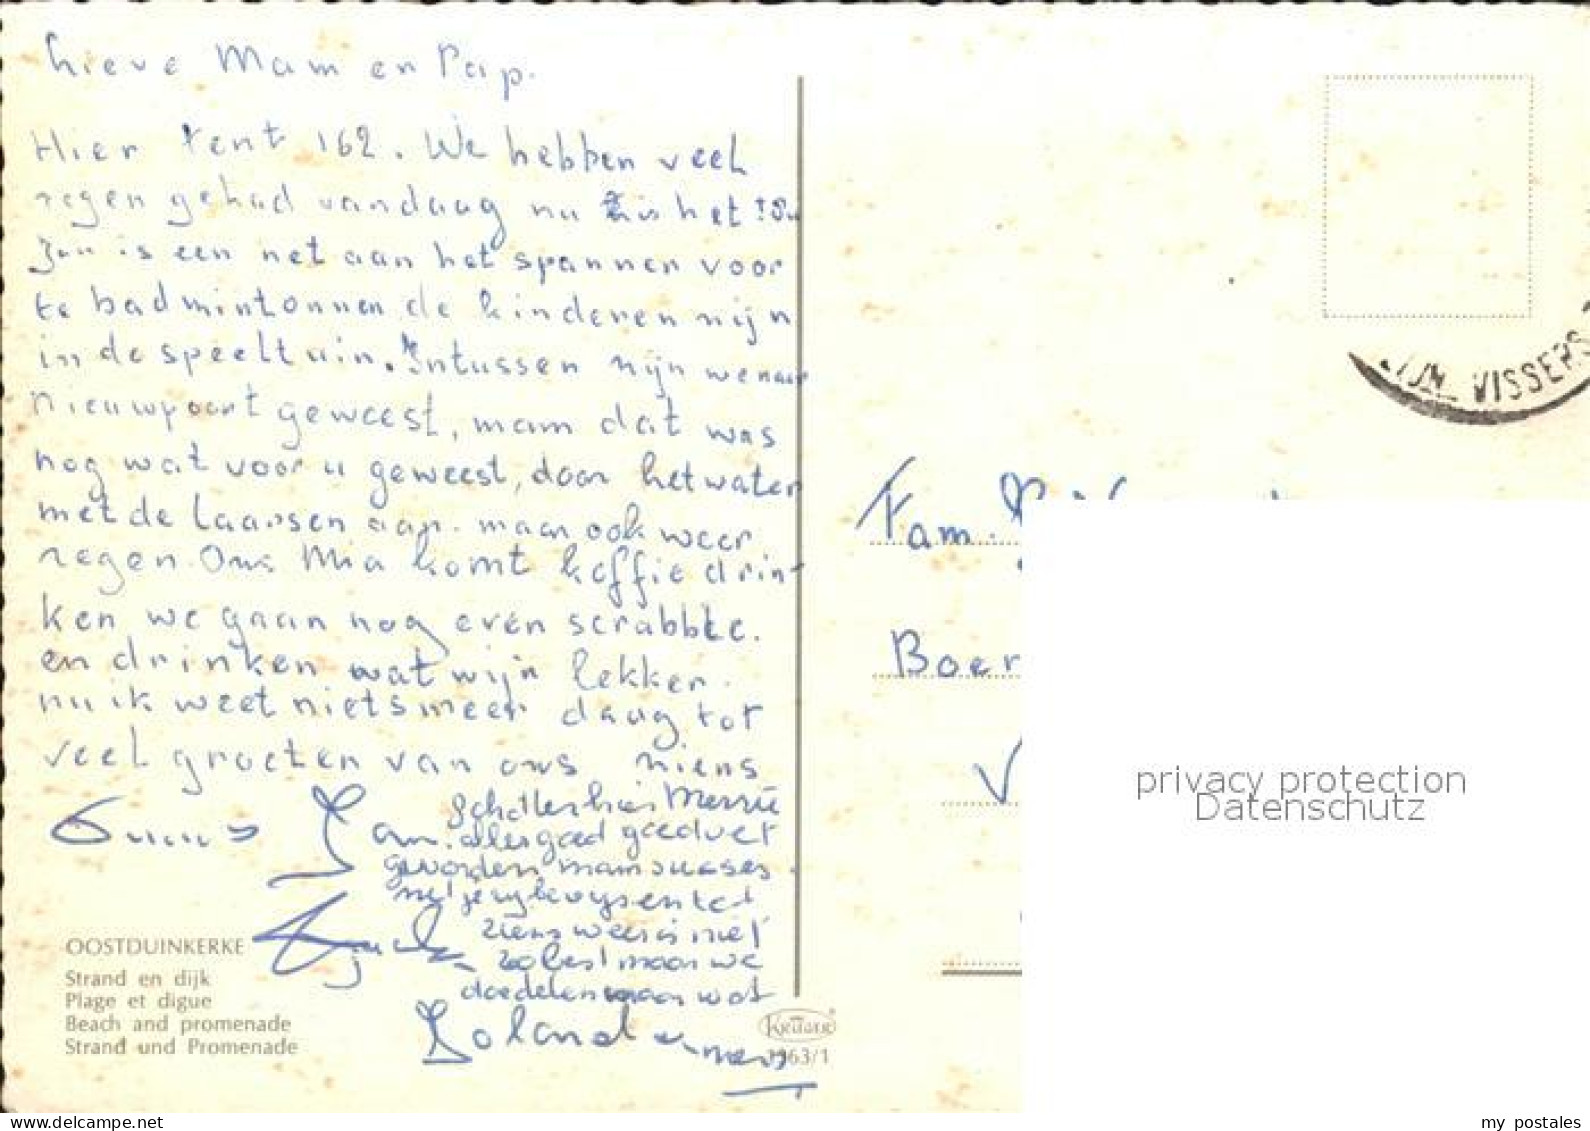 Lieve Mam en Pap.
Hier tent 162. We hebben veel
regen gehad vandaag nu is het
Jan is een net aan het spannen voor
te badmintonnen de kinderen zijn
in de speeltuin. Intussen zijn we naar
Nieuwpoort geweest, mam dat was
nog wat voor u geweest, door het water
met de laarsen aan. maar ook weer
regen. Ons Mia komt koffie drin-
ken we gaan nog even scrabble.
en drinken wat wijn lekker.
nu ik weet niets meer daag tot
veel groeten van ons niens
Jan. alles goed goed vet
geworden mam succes
met je rybewys en tot
ziens weer is niet
zo best maar we
doedelen maar wat
OOSTDUINKERKE
Strand en dijk
Plage et digue
Beach and promenade
Strand und Promenade
1963/1
VISSERS
Fam.
Boer
V
privacy protection
Datenschutz
my postales
www.delcampe.net